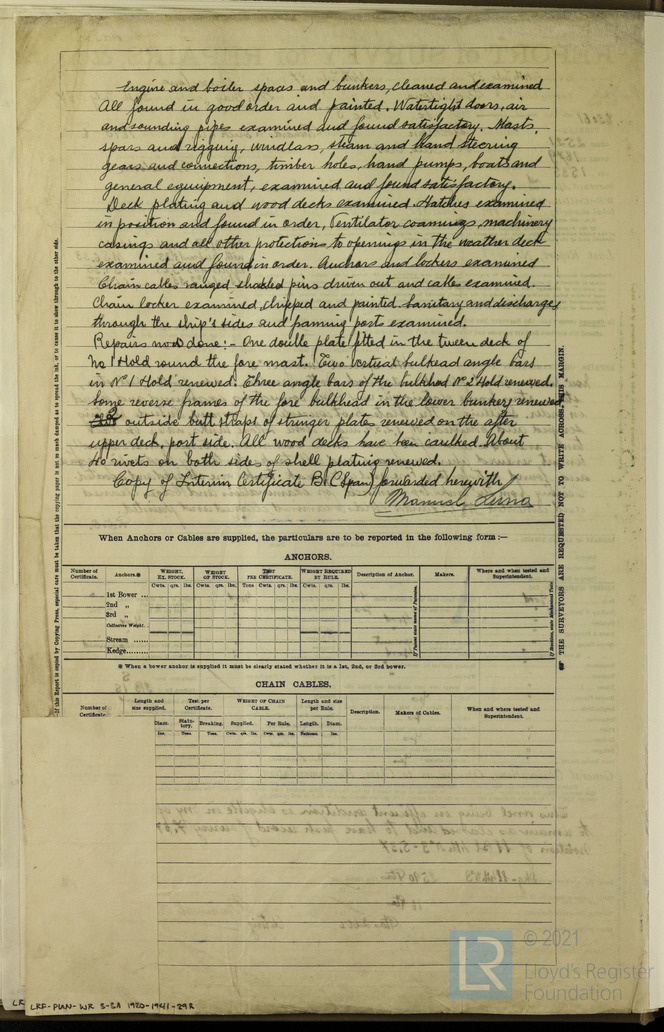 Engine and boiler spaces and bunkers, cleaned and examined
All found in good order and painted. Watertight doors, air
and sounding pipes examined and found satisfactory. Masts,
spars and rigging, windlass, steam and hand steering
gears and connections, timber holes, hand pumps, boats and
general equipment, examined and found satisfactory.
Deck plating and wood decks examined. Hatches examined
in position and found in order, Ventilator coamings, machinery
casings and all other protections to openings in the weather deck
examined and found in order. Anchors and lockers examined
Chain cables ranged shakled pins driven out and cables examined.
Chain locker examined, chipped and painted. Sanitary and discharges
through the ship's sides and framing port examined.
Repairs now done:- One double plate fitted in the tween deck of
No 1 Hold round the fore mast. Two vertical bulkhead angle bars
in Nº 1 Hold renewed. Three angle bars of the bulkhead Nº 2 Hold renewed.
Some reverse frames of the fore bulkhead in the lower bunkers renewed
outside butt straps of stringer plates renewed on the after
upper deck, port side. All wood decks have been caulked. About
40 rivets on both sides of shell plating renewed.
Copy of Interim Certificate B.C (Span) forwarded herewith
Manuel
When Anchors or Cables are supplied, the particulars are to be reported in the following form :—
ANCHORS.
Number of Certificate. Anchors.* WEIGHT, EX. STOCK. WEIGHT OF STOCK. TEST PER CERTIFICATE. WEIGHT REQUIRED BY RULE. Description of Anchor. Makers. Where and when tested and Superintendent.
Cwts. qrs. lbs. Cwts. qrs. lbs. Tons Cwts. qrs. lbs. Cwts. qrs. lbs.
1st Bower ...
2nd „
3rd „
Collective Weight.
Stream ......
Kedge.........
* When a bower anchor is supplied it must be clearly stated whether it is a 1st, 2nd, or 3rd bower.
CHAIN CABLES.
Number of Certificate. Length and size supplied. Test per Certificate. WEIGHT OF CHAIN CABLE. Length and size per Rule. Description. Makers of Cables. When and where tested and Superintendent.
Diam. Statutory. Breaking. Supplied. Per Rule. Length. Diam.
Ins. Tons. Tons. Cwts. qrs. lbs. Cwts. qrs. lbs. Fathoms. Ins.
If this Report is copied by Copying Press, especial care must be taken that the copying paper is not so much damped as to spread the ink, or to cause it to show through to the other side.
THE SURVEYORS ARE REQUESTED NOT TO WRITE ACROSS THIS MARGIN.
LRF-PUN-WR 3-3A 1920-1941-29R
LR
© 2021
Lloyd's Register
Foundation